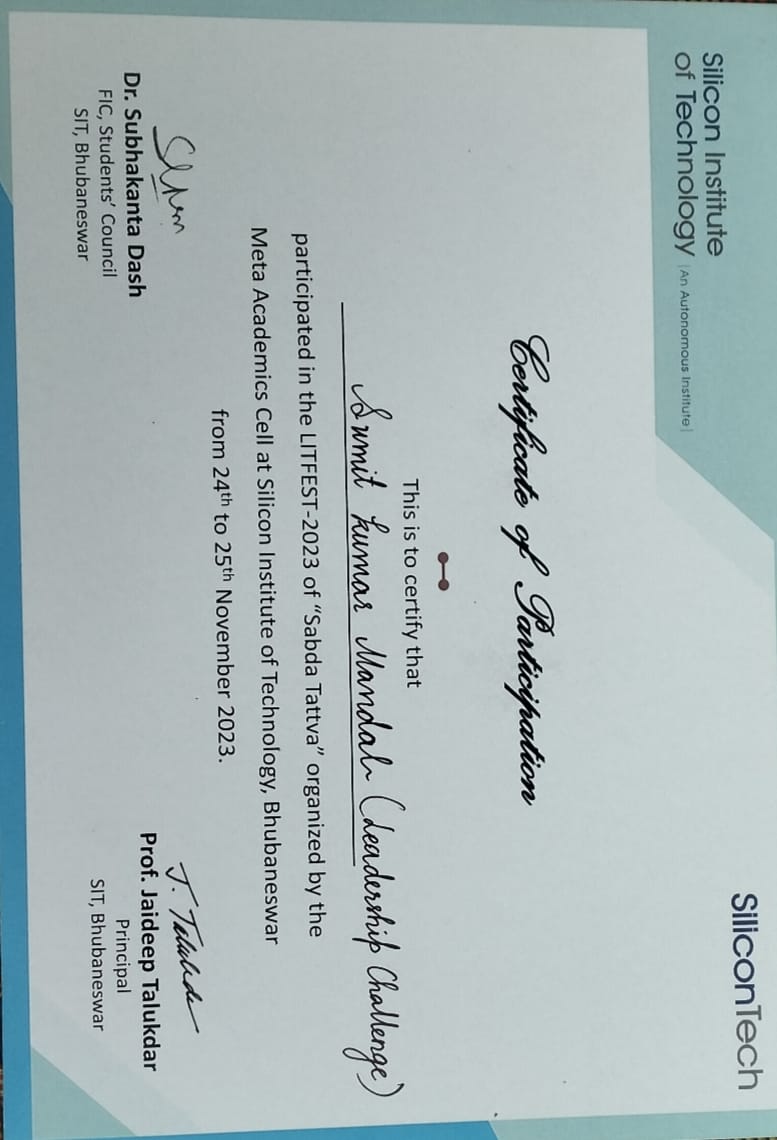 Silicon Institute
of Technology |An Autonomous Institute|
SiliconTech
Certificate of Participation
This is to certify that
Sumit Kumar Mandal (Leadership Challenge)
participated in the LITFEST-2023 of “Sabda Tattva” organized by the
Meta Academics Cell at Silicon Institute of Technology, Bhubaneswar
from 24th to 25th November 2023.
Dr. Subhakanta Dash
FIC, Students’ Council
SIT, Bhubaneswar
J. Talukdar
Prof. Jaideep Talukdar
Principal
SIT, Bhubaneswar